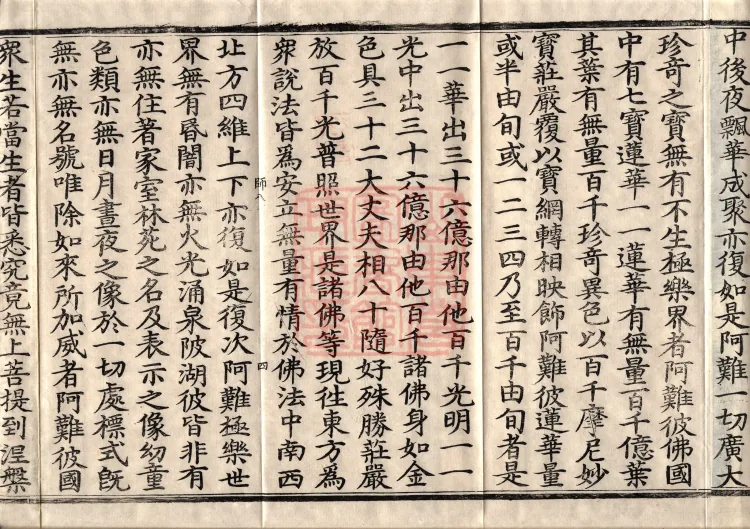 中後夜飄華成聚亦復如是阿難一切廣大
珍奇之寶無有不生極樂界者阿難彼佛國
中有七寶蓮華一一蓮華有無量百千億葉
其葉有無量百千珍奇異色以百千摩尼妙
寶莊嚴覆以寶網轉相映飾阿難彼蓮華量
或半由旬或一二三四乃至百千由旬者是
一一華出三十六億那由他百千光明一一
光中出三十六億那由他百千諸佛身如金
色具三十二大丈夫相八十隨好殊勝莊嚴
放百千光普照世界是諸佛等現往東方爲
衆說法皆爲安立無量有情於佛法中南西
師八 四
北方四維上下亦復如是復次阿難極樂世
界無有昏闇亦無火光涌泉陂湖彼皆非有
亦無住著家室林苑之名及表示之像幼童
色類亦無日月晝夜之像於一切處標式旣
無亦無名號唯除如來所加威者阿難彼國
衆生若當生者皆悉究竟無上菩提到涅槃